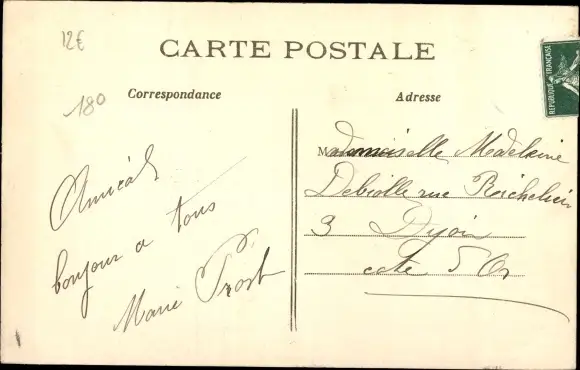 12€
CARTE POSTALE
180
Correspondance
Adresse
REPUBLIQUE FRANÇAISE
Amical
bonjour a tous
Marie Prost
Mademoiselle Madeleine
Debiolle rue Richelieu
3 Dijon
cote d'Or